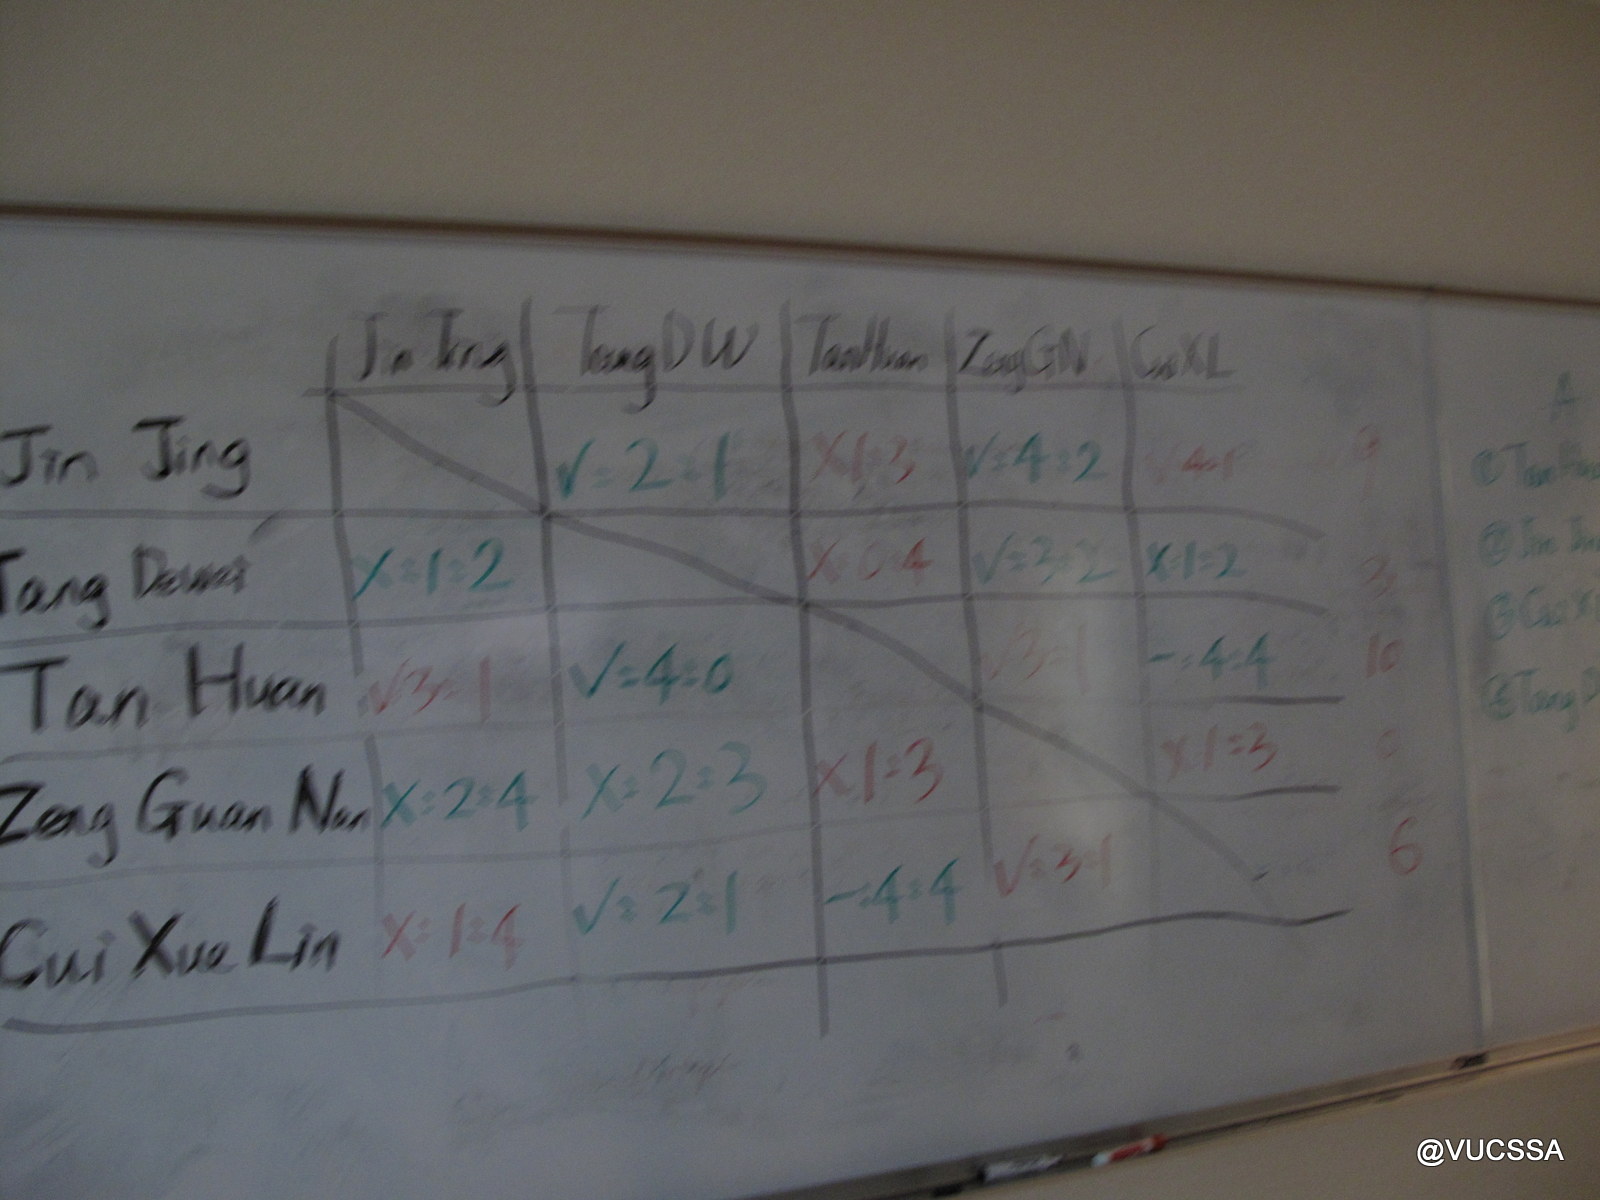 Jin Jing Tang DW Tan Huan Zeng GN Cui XL
Jin Jing √=2=1 X1=3 √=4=2 √4=1 9
Tang Dewei X=1=2 X=0=4 √=3=2 X=1=2 3
Tan Huan √3=1 √=4=0 √3=1 -=4=4 10
Zeng Guan Nan X=2=4 X=2=3 X1=3 X1=3 0
Cui Xue Lin X=1=4 √=2=1 -=4=4 √=3=1 6
A
① Tan
② Jin
③ Cui X
④ Tang D
@VUCSSA